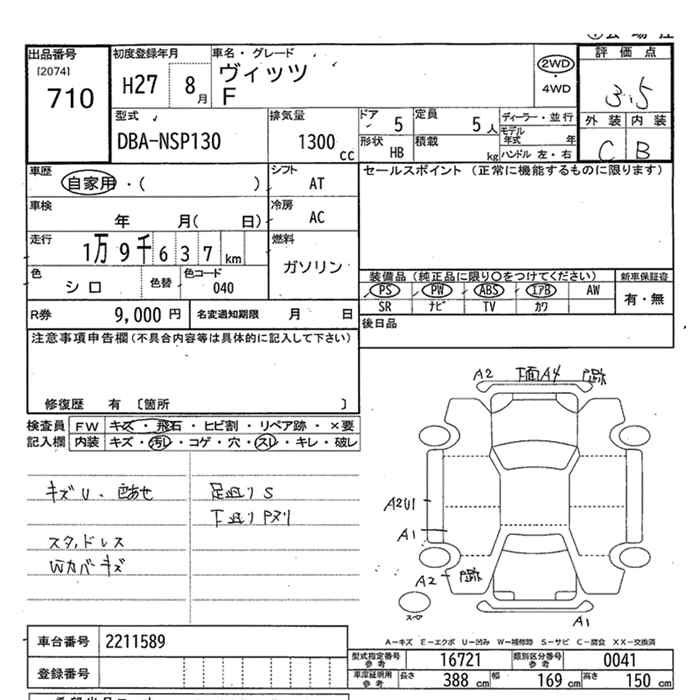 出品番号 初度登録年月 車名・グレード 評価点
[2074]
710 H27 8月 ヴィッツ F 2WD・4WD 3.5
型式 排気量 ドア 5 定員 5人 ディーラー・並行 外装 内装
DBA-NSP130 1300cc 形状 HB 積載 kg モデル年式 年 ハンドル 左・右 C B
車歴 自家用・( ) シフト AT セールスポイント (正常に機能するものに限ります)
車検 年 月( 日) 冷房 AC
走行 1万9千637km 燃料 ガソリン
色 シロ 色替 色コード 040 装備品(純正品に限り○をつけてください) 新車保証書
PS PW ABS エアB AW 有・無
SR ナビ TV カワ
R券 9,000円 名変通知期限 月 日 後日品
注意事項申告欄(不具合内容等は具体的に記入して下さい)
修復歴 有 〔箇所 〕
検査員記入欄 FW キズ・飛石・ヒビ割・リペア跡・×要
内装 キズ・汚レ・コゲ・穴・スレ・キレ・破レ
A2 下面A4
キズU・色あせ 足廻りS
下廻りPヌリ
スタッドレス
Wカバーキズ
A2U1
A1
A2
スペア
A1
A-キズ E-エクボ U-凹み W-補修跡 S-サビ C-腐食 XX-交換済
車台番号 2211589
型式指定番号 参考 16721 類別区分番号 参考 0041
登録番号 車庫証明用 参考 長さ 388cm 幅 169cm 高さ 150cm